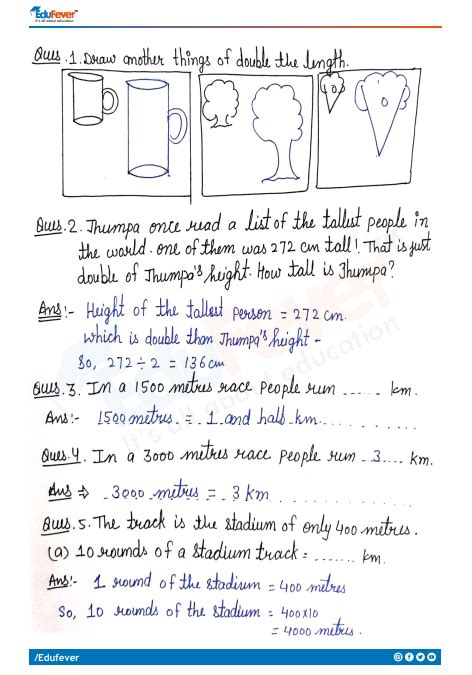 EduFever
It's all about education
Ques.1. Draw another things of double the length.
Ques.2. Thumpa once read a list of the tallest people in
the world. one of them was 272 cm tall! That is just
double of Thumpa's height. How tall is Thumpa?
Ans:- Height of the tallest person = 272 cm.
which is double than Thumpa's height -
So, 272 ÷ 2 = 136 cm
Ques.3. In a 1500 metres race people run ...... km.
Ans:- 1500 metres = 1 and half km..............
Ques.4. In a 3000 metres race people run .3.... km.
Ans ⇒ .3000 metres = .3 km ..............
Ques.5. The track is the stadium of only 400 metres.
(a) 10 rounds of a stadium track = ....... km.
Ans:- 1 round of the stadium = 400 metres
So, 10 rounds of the stadium = 400x10
= 4000 metres.
/Edufever